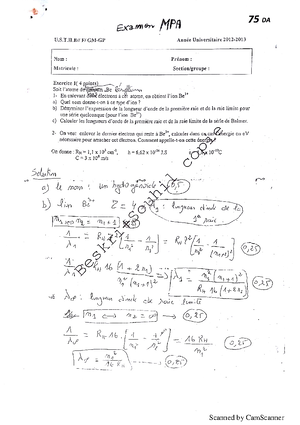 Examen MPA
75 DA
U.S.T.H.B// F/ GM-GP Année Universitaire 2012-2013
Nom : Prénom :
Matricule : Section/groupe :
Exercice 1( 4 points)
Soit l'atome de Béryllium
1- En enlevant électrons à cet atome, on obtient l'ion Be³⁺
a) Quel nom donne-t-on à ce type d'ion ?
b) Déterminer l'expression de la longueur d'onde de la première raie et de la raie limite pour
une série quelconque (pour l'ion Be³⁺)
c) Calculer les longueurs d'onde de la première raie et de la raie limite de la série de Balmer.
2- On veut enlever le dernier électron qui reste à Be³⁺, calculer dans ce cas énergie en eV
nécessaire pour arracher cet électron. Comment appelle-t-on cette
On donne : R_H = 1,1 x 10⁷ m⁻¹, h = 6,62 x 10⁻³⁴ J.S
C = 3 10⁸ m/s
Solution
a) le nom : un hydrogénoïde 0,5
b) l'ion Be³⁺ Z = 4 λ₁ : longueur d'onde de la
1ère raie
n₁ → n₂ = n₁ + 1
1/λ₁ = R_H Z² [1/n₁² - 1/n₂²] = R_H Z² [1/n₁² - 1/(n₁+1)²] 0,25
1/λ₁ = R_H 16 (1 + 2n₁)/(n₁²(n₁+1)²) ⇒ λ₁ = n₁²(n₁+1)²/(R_H 16(1+2n₁)) 0,25
longueur d'onde de raie limite
n₁ ↔ n₂ = ∞ 0,25
= R_H 16 [1/n₁² - 1/n₂²] = 16 R_H/n₁²
= n₁²/(16 R_H) 0,25
Beskri Souhil copie
Scanned by CamScanner